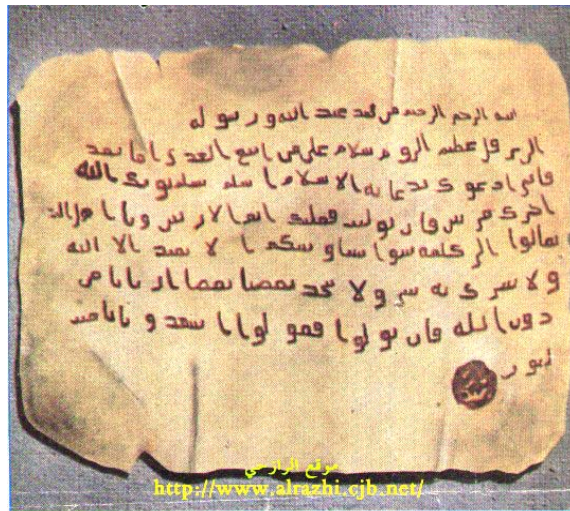 الله الرحمن الرحيم من محمد عبد الله ورسوله
الى هرقل عظيم الروم سلام على من اتبع الهدى اما بعد
فانى ادعوك بدعاية الاسلام اسلم تسلم يوتك الله
اجرك مرتين فان توليت فعليك اثم الاريسين ويا اهل الكتـ
تعالوا الى كلمة سوا بيننا وبينكم الا نعبد الا الله
ولا نشرك به شيئا ولا يتخذ بعضنا بعضا اربابا من
دون الله فان تولوا فقولوا اشهدوا بانا مسـ
لمون
موقع الرازحي
http://www.alrazhi.cjb.net/